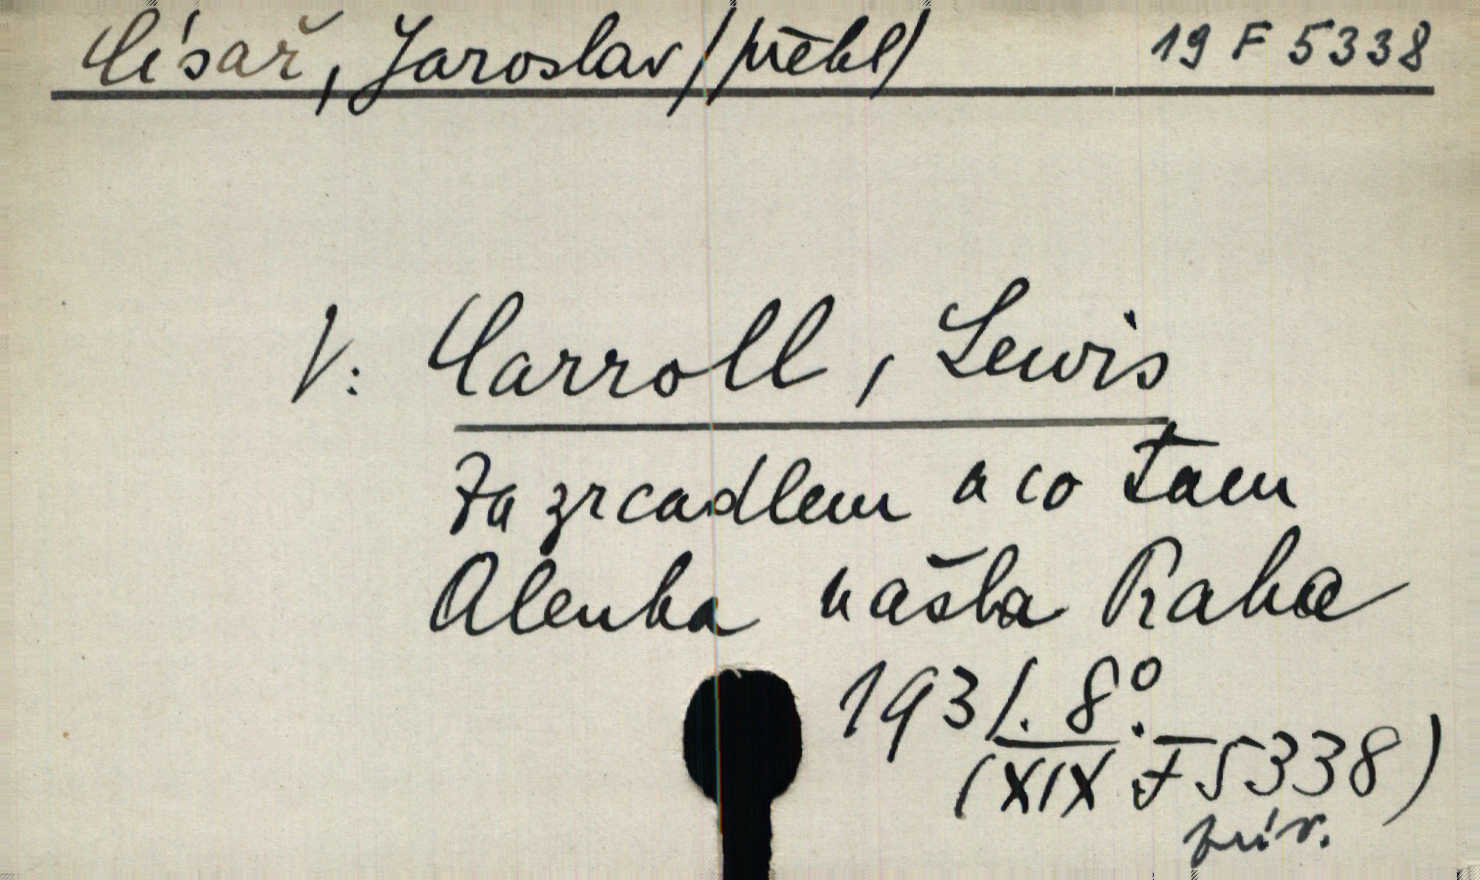 Císař, Jaroslav /překl/ 19 F 5338
V: Carroll, Lewis
Za zrcadlem a co tam
Alenka našla Praha
1931. 8°.
(XIX F 5338)
přív.